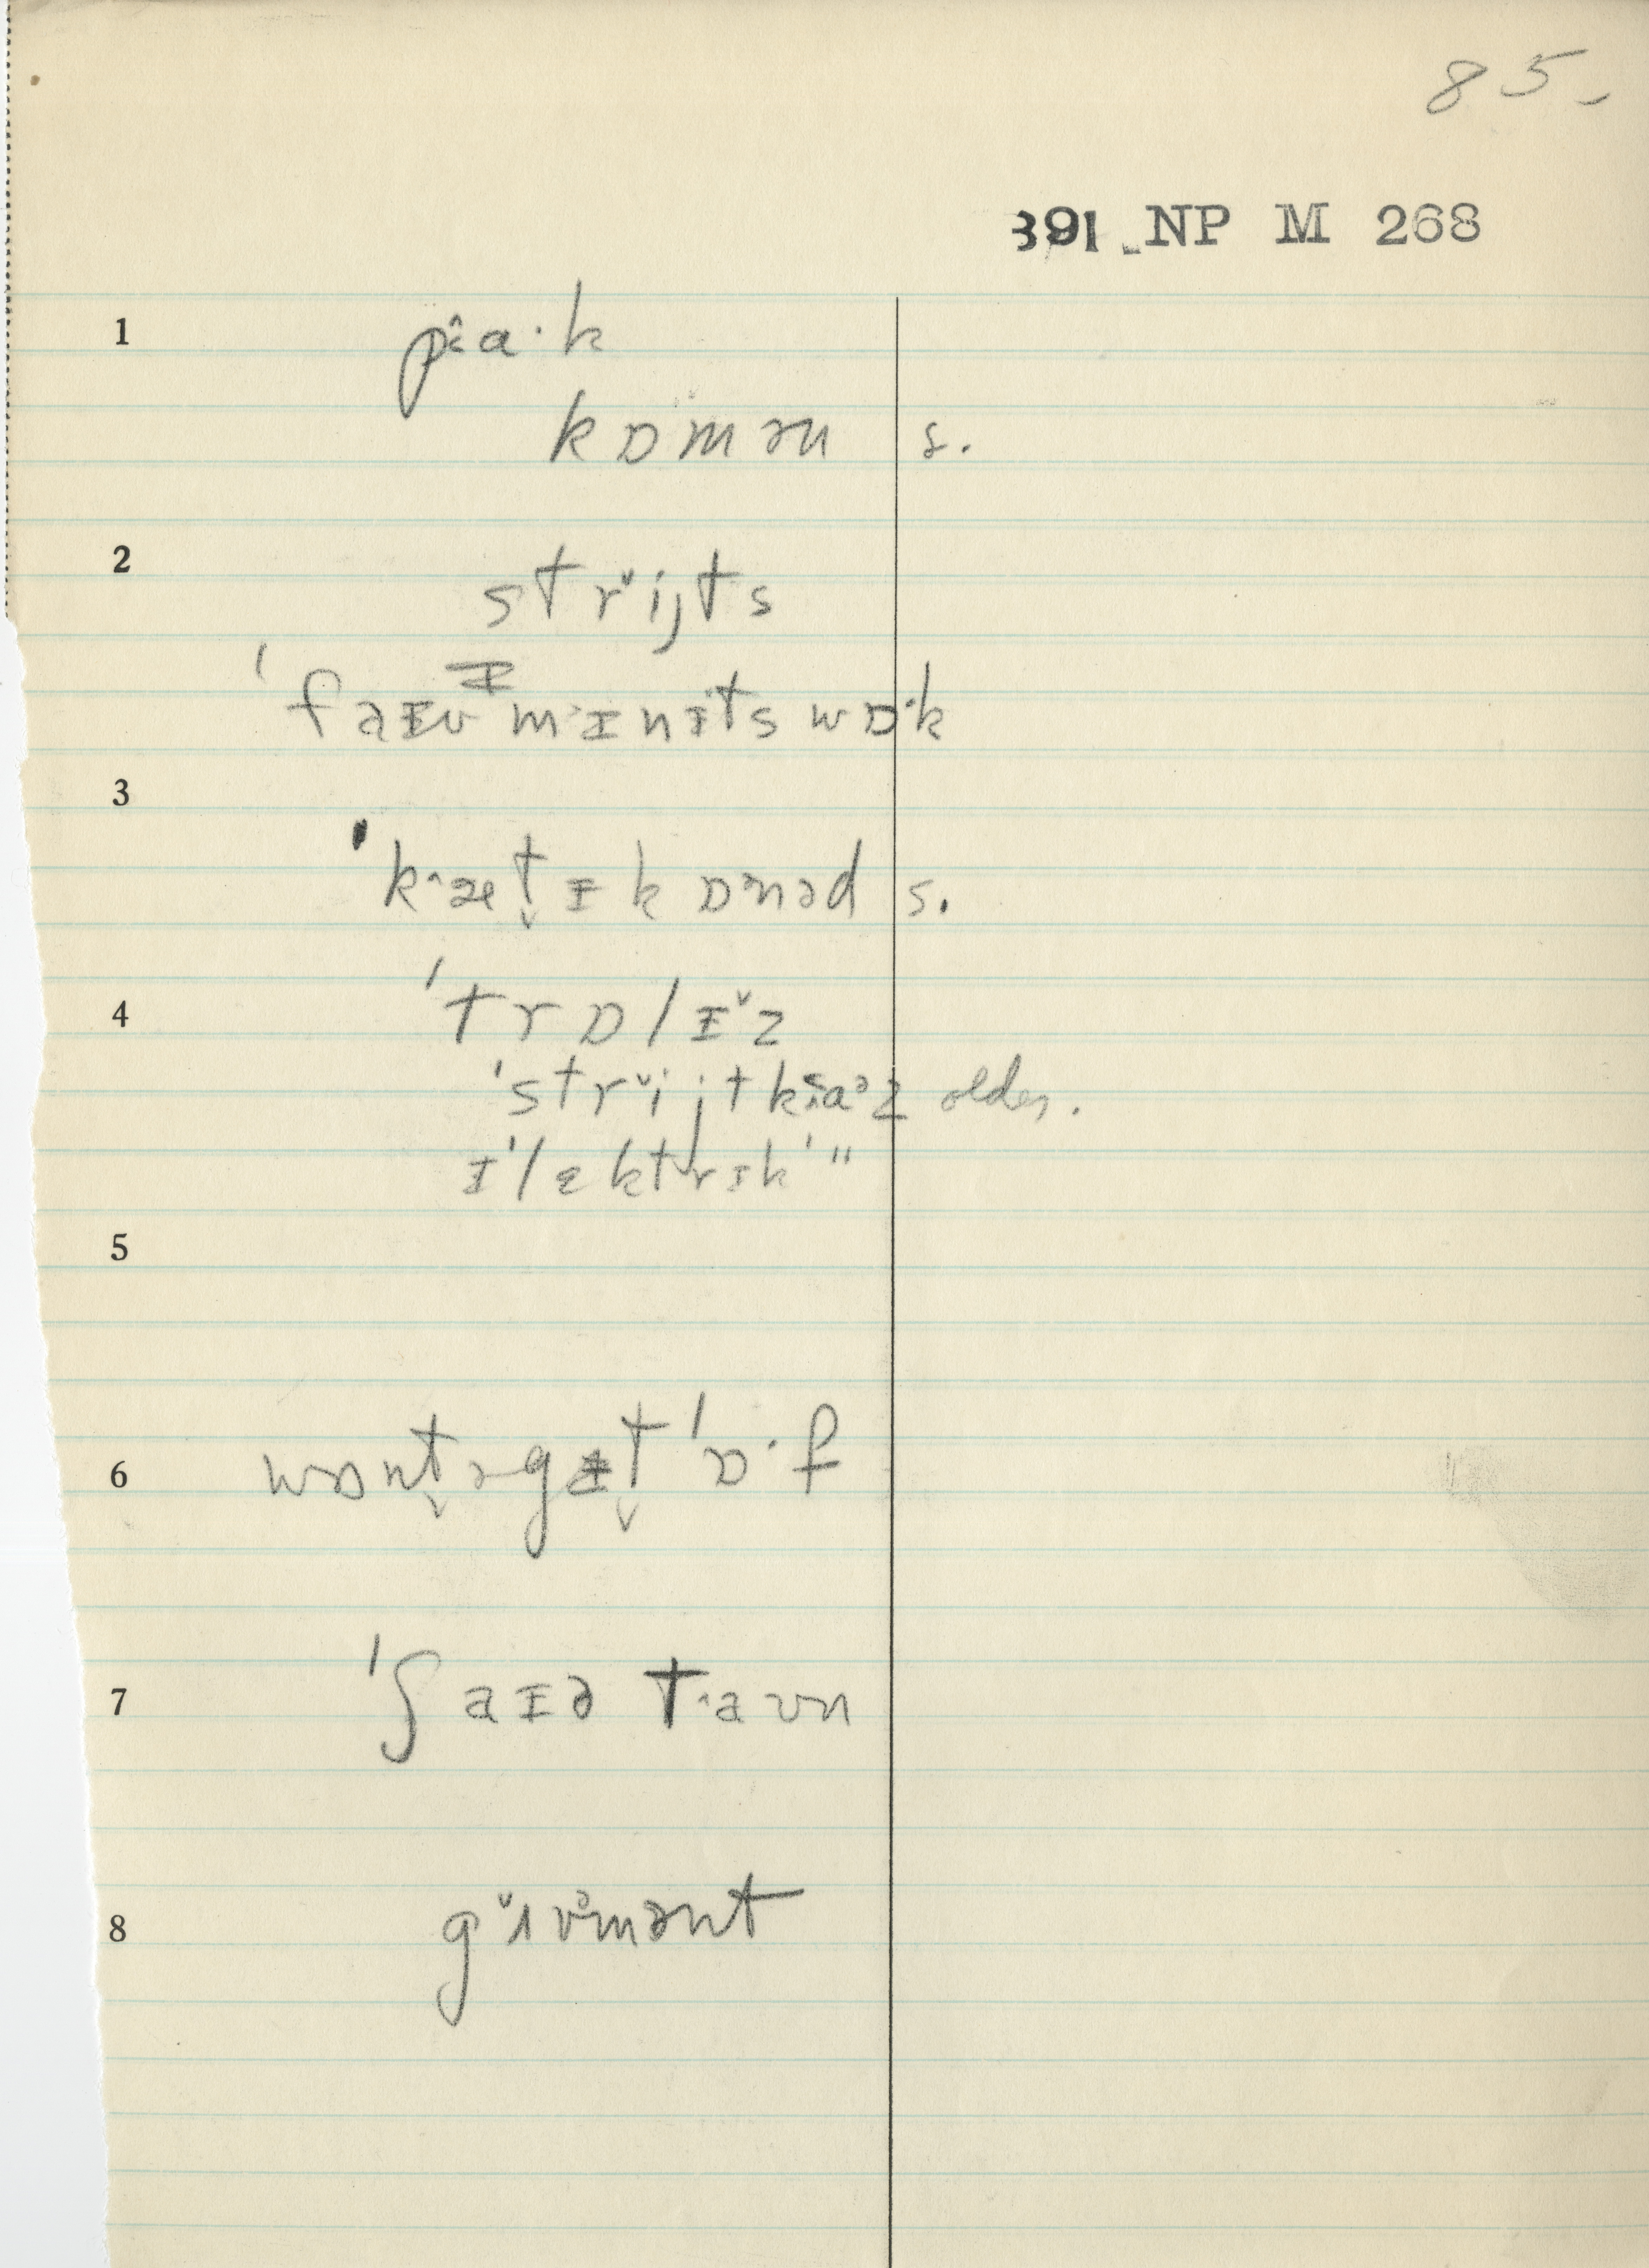 85.
391 NP M 268
1 pɑ·k
kɒmən s.
2 strijts
'faɪv mɪnɪts wɒ·k
3 'kæt̬ɪkɒnəd s.
4 'trɒlɪˇz
'strˇijtkɑᵊz older.
ɪ'lɛktrɪk' "
5
6 wɒnt̬əgɪt̬ 'ɒ·f
7 'ʃaɪə taʊn
8 gˇʌvᵊmənt